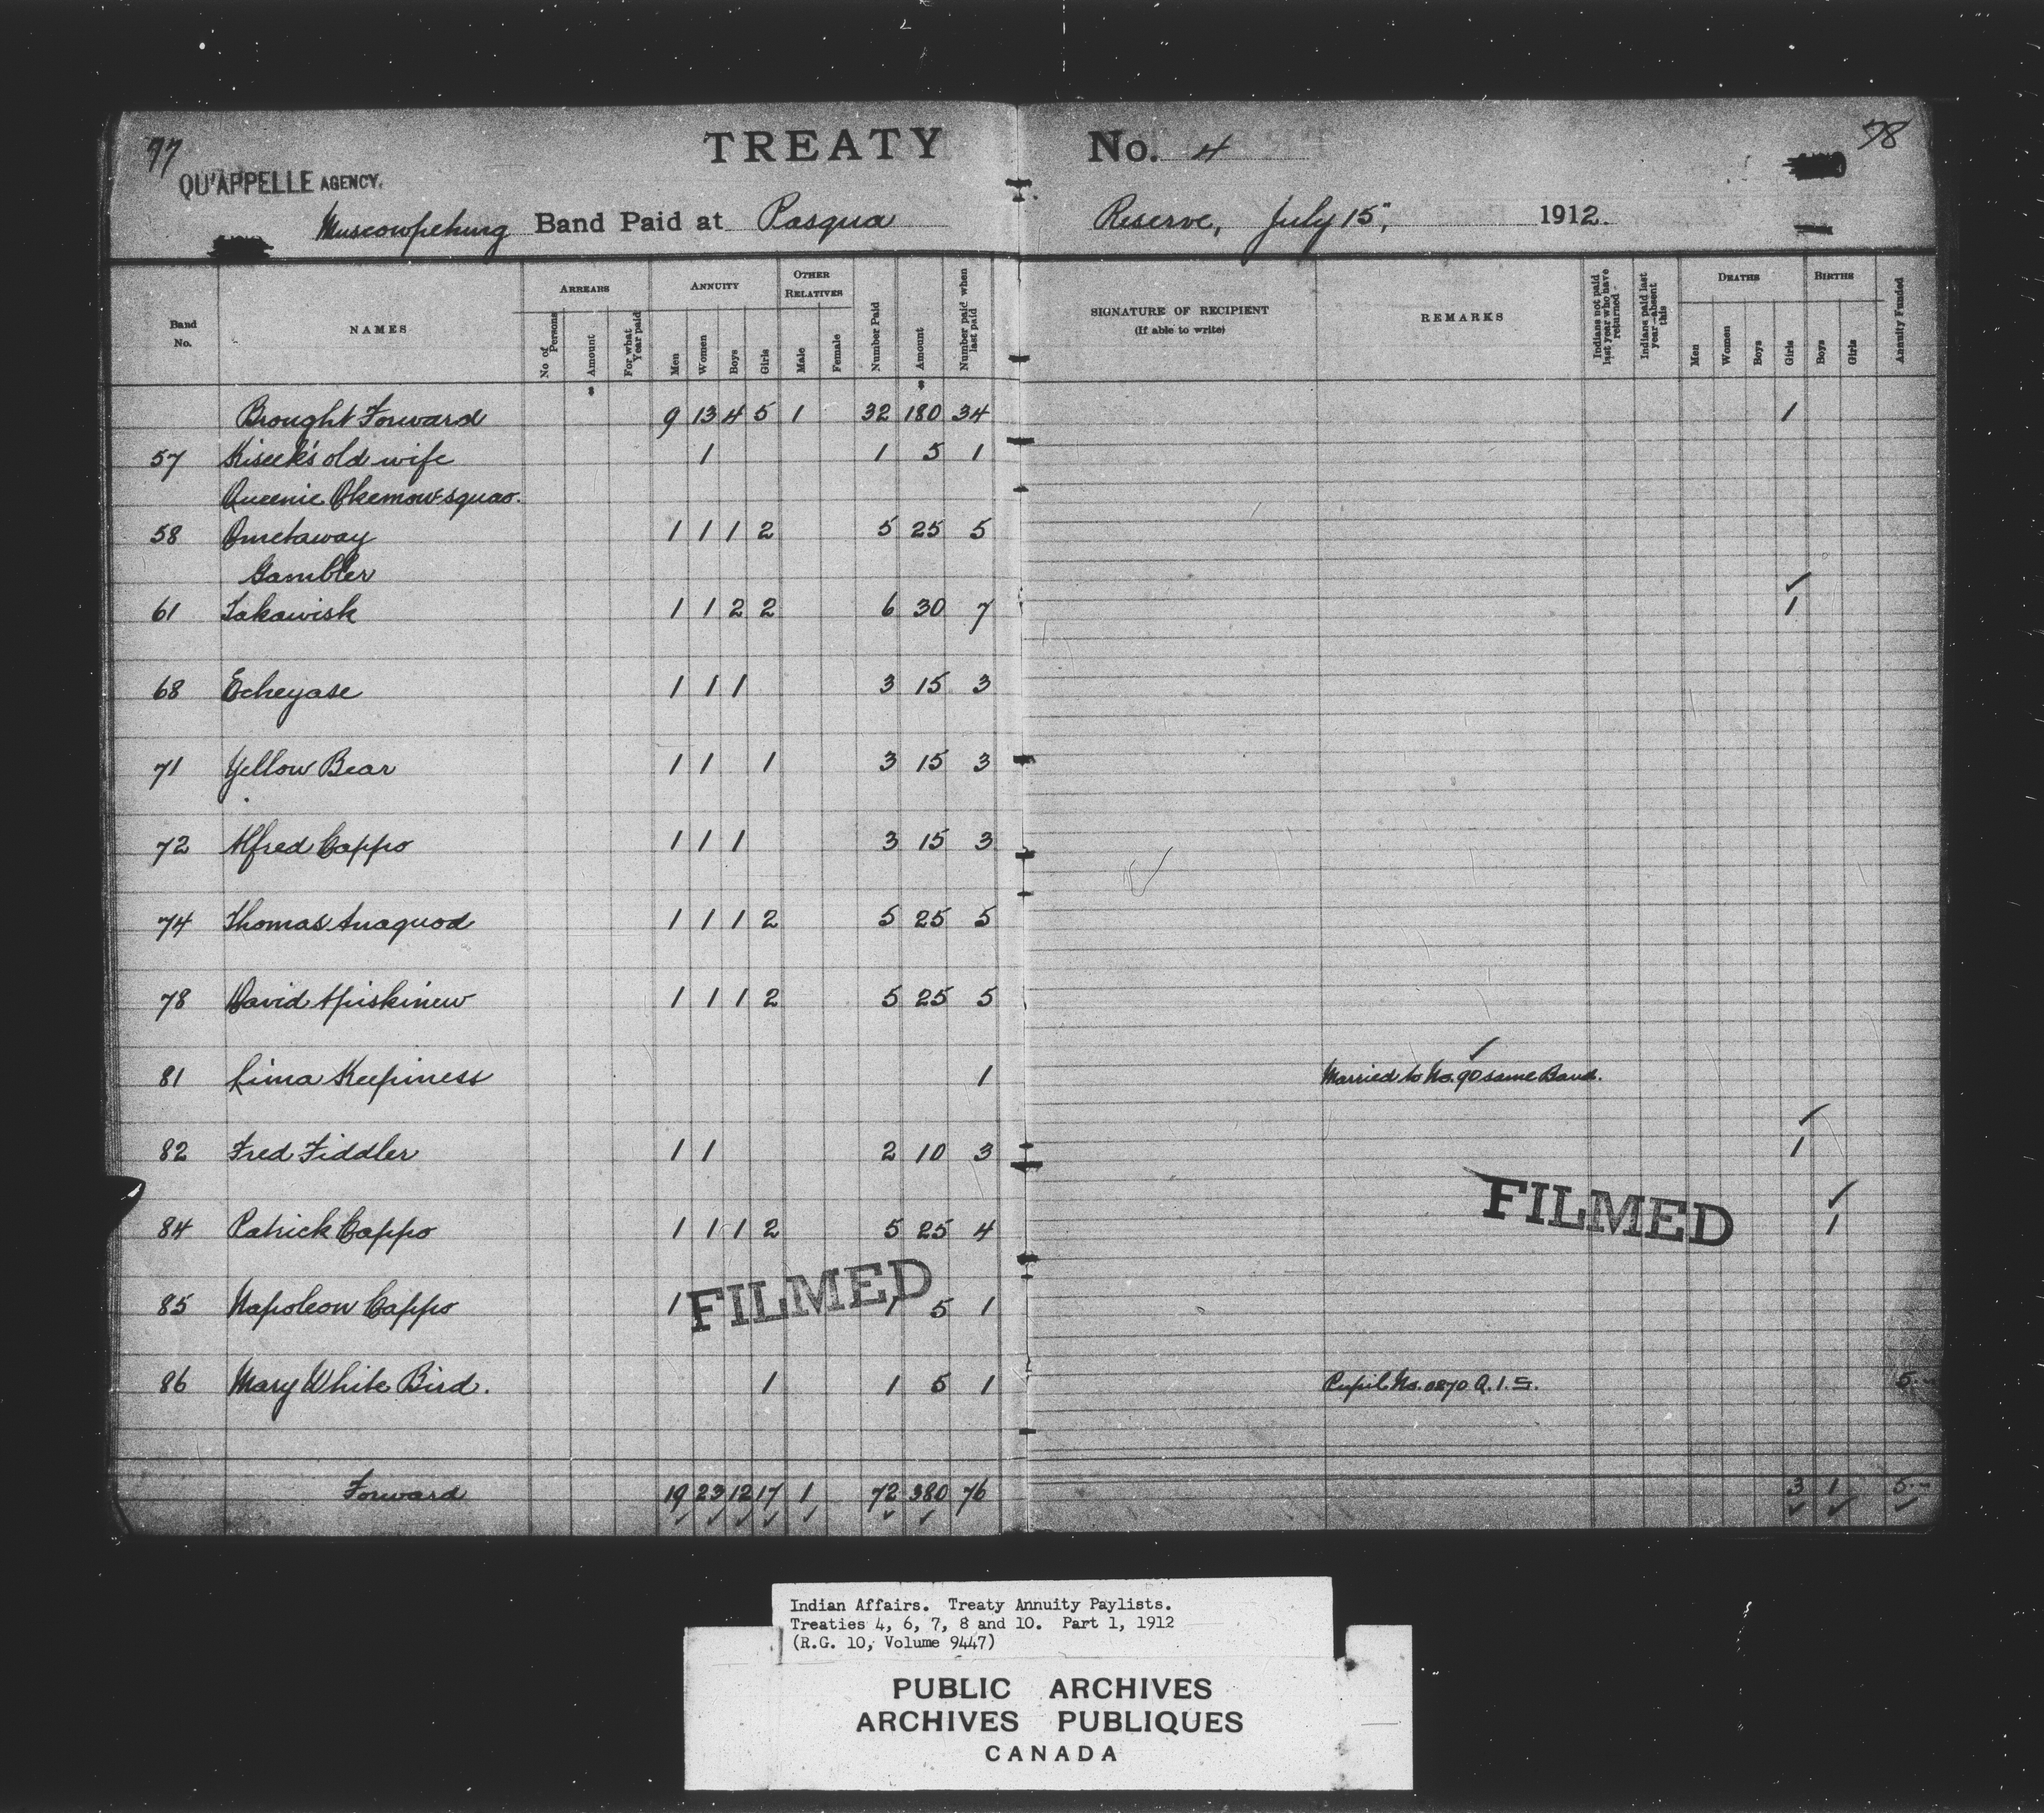 77
TREATY No. 4
78
QU'APPELLE AGENCY.
Muscowpetung Band Paid at Pasqua Reserve, July 15", 1912.
Band No. NAMES ARREARS No of Persons Amount For what Year paid ANNUITY Men Women Boys Girls OTHER RELATIVES Male Female Number Paid Amount Number paid when last paid SIGNATURE OF RECIPIENT (If able to write) REMARKS Indians not paid last year who have returned Indians paid last year—absent this DEATHS Men Women Boys Girls BIRTHS Boys Girls Annuity Funded
$ $
Brought Forward 9 13 4 5 1 32 180 34 1
57 Kiseek's old wife 1 1 5 1
Queenie Okemow-squao.
58 Ometaway 1 1 1 2 5 25 5
Gambler
61 Takawisk 1 1 2 2 6 30 7 1
68 Echeyase 1 1 1 3 15 3
71 Yellow Bear 1 1 1 3 15 3
72 Alfred Cappo 1 1 1 3 15 3
74 Thomas Anaquod 1 1 1 2 5 25 5
78 David Apiskinew 1 1 1 2 5 25 5
81 Lima Keepiness 1 Married to No. 90 same Band.
82 Fred Fiddler 1 1 2 10 3 1
84 Patrick Cappo 1 1 1 2 5 25 4 1
FILMED
85 Napoleon Cappo 1 1 5 1
FILMED
86 Mary White Bird. 1 1 5 1 Pupil No. 0270 Q.I.S. 5.-
Forward 19 23 12 17 1 72 380 76 3 1 5.-
Indian Affairs. Treaty Annuity Paylists.
Treaties 4, 6, 7, 8 and 10. Part 1, 1912
(R.G. 10, Volume 9447)
PUBLIC ARCHIVES
ARCHIVES PUBLIQUES
CANADA